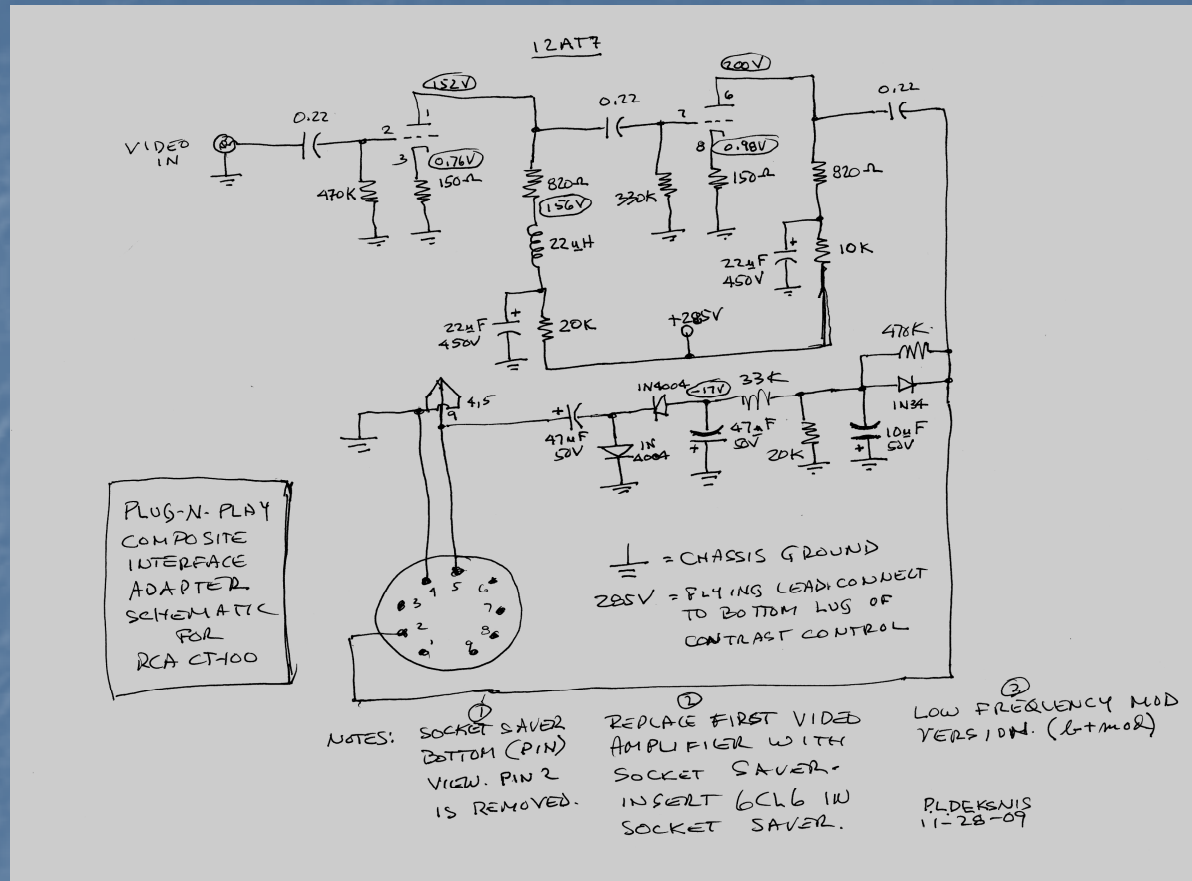 12AT7
152V
200V
0.22
0.22
0.22
1
6
VIDEO
IN
2
7
3
0.76V
8
0.98V
470K
150Ω
820Ω
156V
330K
150Ω
820Ω
22µH
22µF
450V
10K
22µF
450V
20K
+285V
470K
4,5
9
1N4004
-17V
33K
1N34
47µF
50V
1N
4004
47µF
50V
20K
10µF
50V
PLUG-N-PLAY
COMPOSITE
INTERFACE
ADAPTER
SCHEMATIC
FOR
RCA CT-100
= CHASSIS GROUND
285V = FLYING LEAD. CONNECT
TO BOTTOM LUG OF
CONTRAST CONTROL
4 5 6
3 7
2 8
1 9
NOTES:
1
SOCKET SAVER
BOTTOM (PIN)
VIEW. PIN 2
IS REMOVED.
2
REPLACE FIRST VIDEO
AMPLIFIER WITH
SOCKET SAVER.
INSERT 6CL6 IN
SOCKET SAVER.
3
LOW FREQUENCY MOD
VERSION. (b+mod)
P.L.DEKSNIS
11-28-09